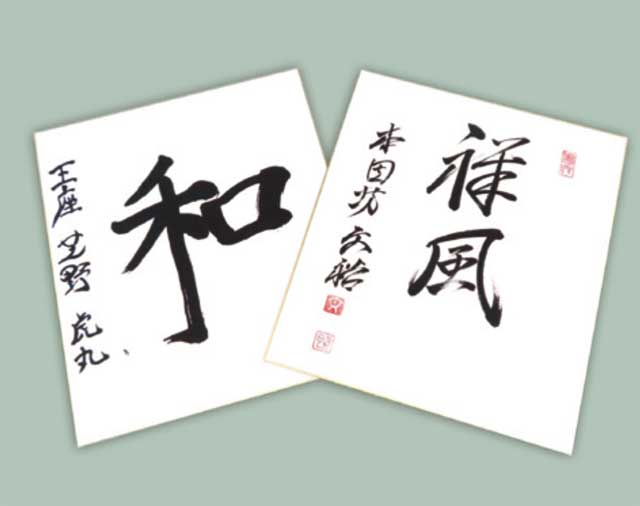 和
王座 芝野 虎丸
祥風
本因坊 文裕